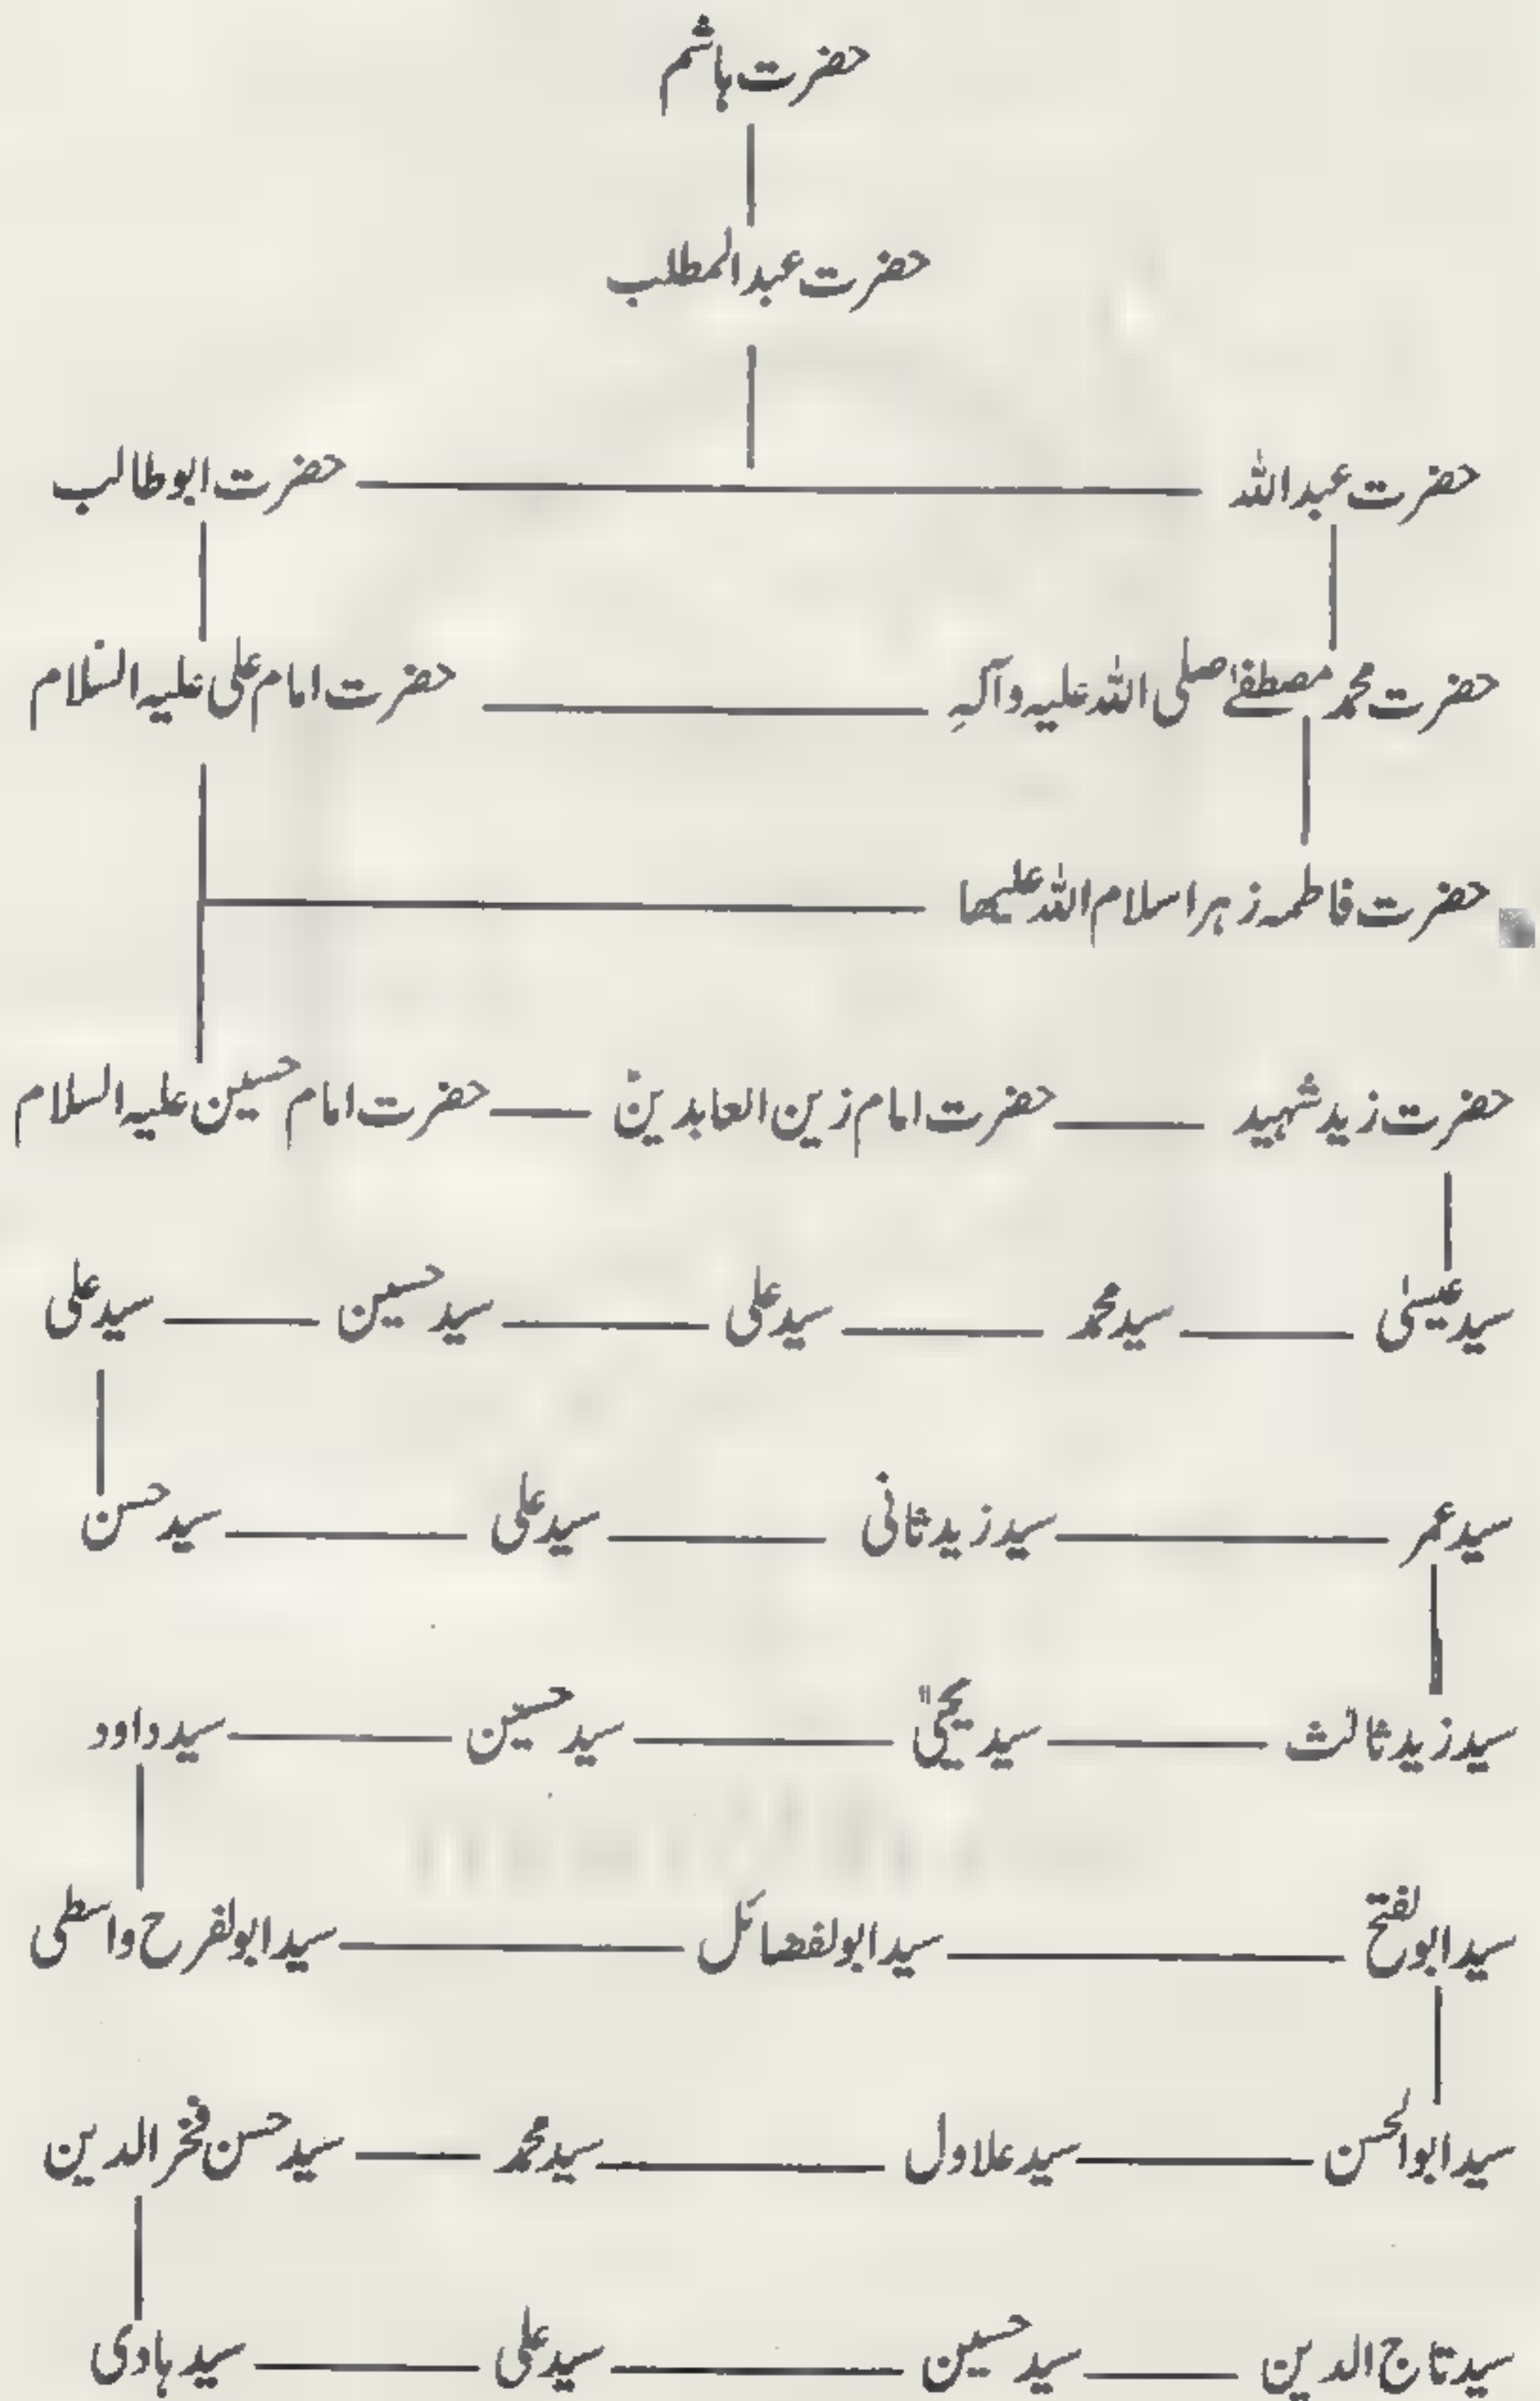 حضرت ہاشم
حضرت عبدالمطلب
حضرت عبداللہ حضرت ابوطالب
حضرت محمد مصطفےٰ صلی اللہ علیہ وآلہٖ حضرت امام علی علیہ السلام
حضرت فاطمہ زہرا سلام اللہ علیھا
حضرت زید شہید حضرت امام زین العابدین حضرت امام حسین علیہ السلام
سید عیسیٰ سید محمد سید علی سید حسین سید علی
سید عمر سید زید ثانی سید علی سید حسن
سید زید ثالث سید یحییٰ سید حسین سید داود
سید ابولفتح سید ابولفضائل سید ابولفرح واسطی
سید ابوالحسن سید علاول سید محمد سید حسن فخر الدین
سید تاج الدین سید حسین سید علی سید ہادی